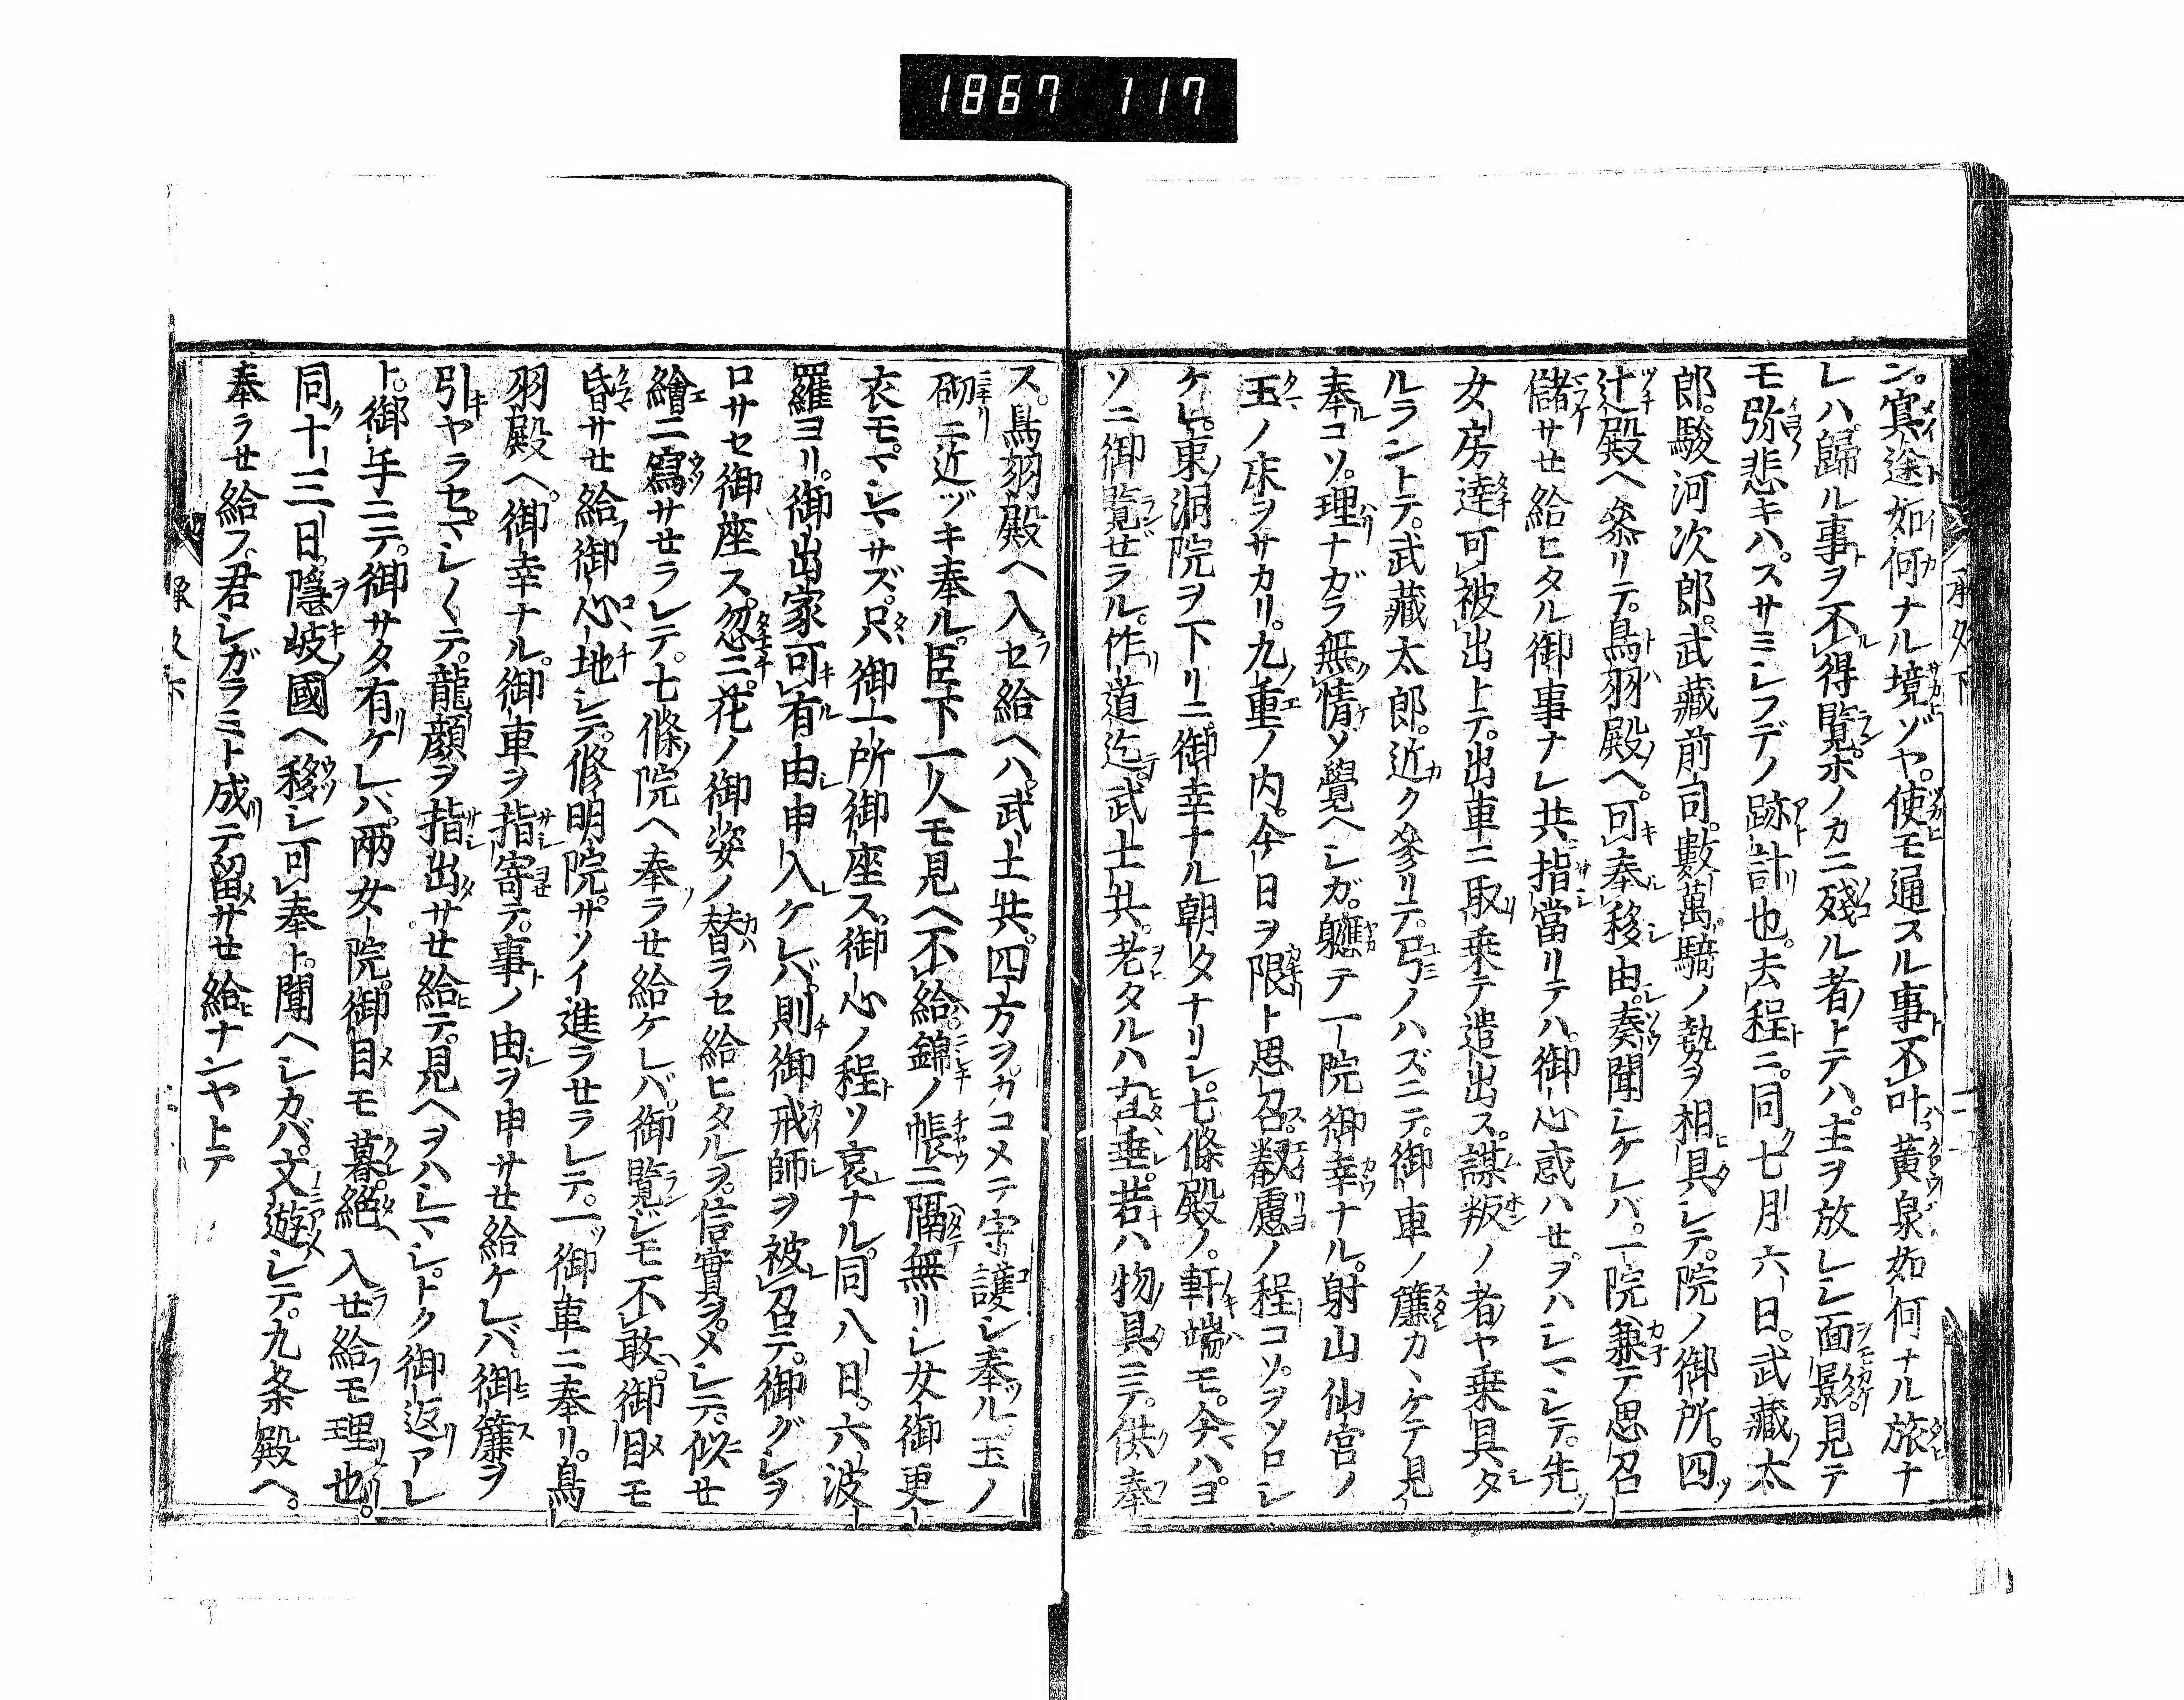 1867 117
ン。冥途如何ナル境ゾヤ。使モ通スル事不叶。黄泉如何ナル旅ナ
レハ。歸ル事ヲ不得覽。ホノカニ殘ル者トテハ。主ヲ放レシ面影。見テ
モ弥悲キハ。スサミシフデノ跡計也。去程ニ。同七月六日。武藏太
郎。駿河次郎。武藏前司。數萬騎ノ勢ヲ相具シテ。院ノ御所。四
辻殿ヘ参リテ。鳥羽殿ヘ。可奉移由。奏聞シケレバ。一院。兼テ思召
儲サセ給ヒタル御事ナレ共。指當リテハ。御心惑ハせヲハシマシテ。先
女房達可被出トテ。出車ニ取乗テ遣出ス。謀叛ノ者ヤ乗具タ
ルラントテ。武藏太郎。近ク參リテ。弓ノハズニテ。御車ノ簾カヽケテ見
奉コソ。理ナガラ無情ソ覺ヘシガ。軈テ一院御幸ナル。射山仙宮ノ
玉ノ床ヲサカリ。九重ノ内。今日ヲ限ト思召。叡慮ノ程コソ。ヲソロシ
ケレ。東洞院ヲ下リニ。御幸ナル。朝タナリシ七條殿ノ。軒端モ。今ハヨ
ソニ御覽ぜラル。作道迄。武士共。老タルハ直垂。若ハ物具ニテ。供奉
ス。鳥羽殿ヘ入セ給ヘハ。武士共。四方ヲカコメテ守護シ奉ル。玉ノ
砌ニ近ヅキ奉ル。臣下一人モ見ヘ不給。錦ノ帳ニ隔無リシ女御更
衣モ。マシマサズ。只御一所御座ス。御心ノ程ソ哀ナル。同八日。六波
羅ヨリ。御出家可有由申入ケレバ。則御戒師ヲ被召テ。御グシヲ
ロサセ御座ス。忽ニ。花ノ御姿ノ替ラセ給ヒタルヲ。信實ヲメシテ。似せ
繪ニ寫サせラレテ。七條院ヘ奉ラせ給ケレバ。御覽シモ不敢。御目モ
昏サせ給御心地シテ。修明院。サソイ進ラせラレテ。一御車ニ奉リ。鳥
羽殿ヘ。御幸ナル。御車ヲ指寄テ。事ノ由ヲ申サせ給ケレバ。御簾ヲ
引ヤラセマシ〱テ。龍顔ヲ指出サせ給テ。見ヘヲハシマシ。トク御返アレ
ト。御手ニテ。御サタ有ケレバ。兩女院。御目モ暮。絶入せ給モ理也。
同十三日。隱岐國ヘ移シ可奉ト。聞ヘシカバ。文遊シテ。九条殿ヘ。
奉ラせ給フ。君シガラミト成テ留サせ給ナンヤトテ